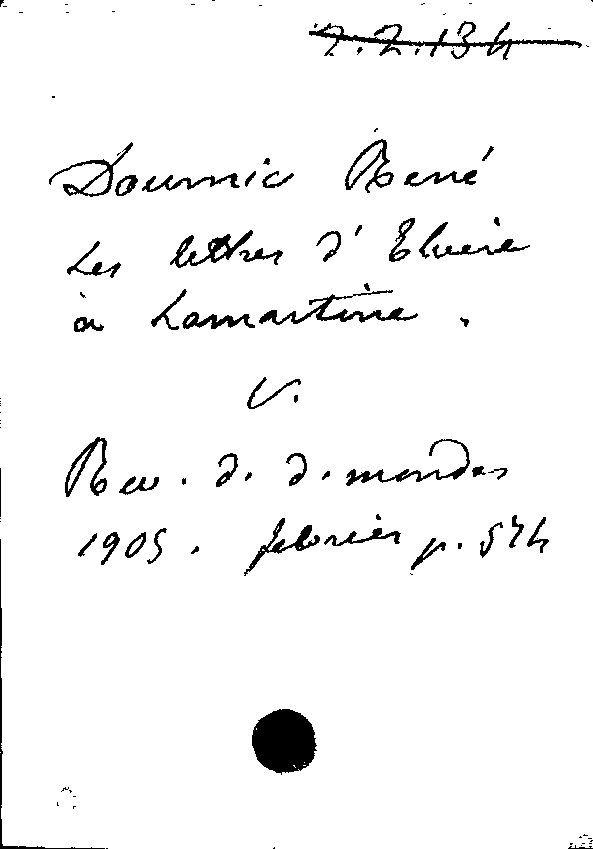 7.2.134
Doumic René
Les lettres d'Elvire
à Lamartine.
v.
Rev. d. d. mondes
1905. février p. 574